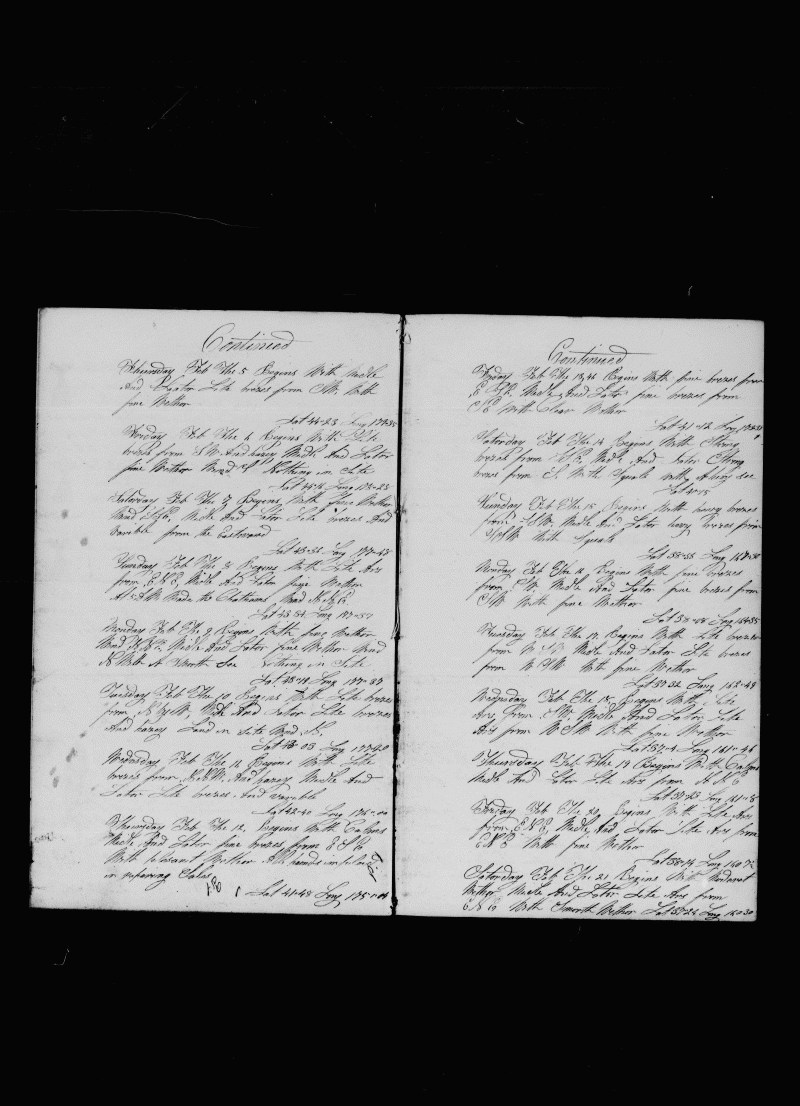 Continued
Thursday Feb The 5 Begins With Midle
And Lator Lite brezes from With
fine Wether
Lat 44-23 Long 177-35
Monday Feb The 6 Begins With Lite
brezes from S W And hazey Midle And Lator
fine Wether Nothing in Site
Lat 44-16 Long
Saturday Feb The 7 Begins With fine Wether
Wind Midle And Lator Lite brezes And
varible from the Eastward
Lat 43-56 Long 177-48
Sunday Feb The 8 Begins With Lite Airs
from E N E Midle And Lator fine Wether
At AM Made the Chathams Wind N N E
Lat 43-54 Long 177-57
Monday Feb The 9 Begins With fine Wether
Wind Midle And Lator fine Wether Wind
N With A Smooth See Nothing in Site
Lat 43-19 Long 177-37
Tuesday Feb The 10 Begins With Lite brezes
from N by W, Midle And Lator Lite brezes
And hazey Land in Site Wind N.
Lat 43-03 Long 177-20
Wednesday Feb The 11 Begins With Lite
brezes from N.N.W. And hazey Midle And
Lator Lite brezes And varible
Lat 42-40 Long 176-00
Thursday Feb The 12, Beggins With Calms
Midle And Lator fine brezes from E S E
With plesant Wether All hands imploied
in repairing Sales
Lat 41-48 Long 175-04
Continued
Friday Feb The 13, 46 Begins With fine brezes from
Midle And Lator fine brezes from
With Clear Wether
Lat 41-12 Long
Saturday Feb The 14 Begins With Strong
brezes from Midle And Lator Strong
brezes from S. With Squals See
Lat
Sunday Feb The 15 Begins With hevy brezes
from S.W. Midle And Lator hevy brezes from
With Squals
Lat 38-55 Long 167-30
Monday Feb The 16 Begins With fine brezes
from S.W. Midle And Lator fine brezes from
S.W With fine Wether
Lat 38-08 Long
Tuesday Feb The 17 Begins With Lite brezes
from Midle And Lator Lite brezes
from With fine Wether
Lat 37-32 Long 162-49
Wednsday Feb The 18 Begins With Lite
Airs from S.W. Midle And Lator Lite
Airs from W.S.W With fine Wether
Lat 37-4 Long 161-46
Thursday Feb The 19 Begins With Calms
Midle And Lator Lite Airs from N N E
Lat Long 161-8
Friday Feb The 20 Begins With Lite Airs
from E.N.E, Midle And Lator Lite Airs from
E N E With fine Wether
Lat 38-14 Long
Saturday Feb The 21 Begins With Moderat
Wether Midle And Lator Lite Airs from
With Smooth Wether Lat 37-24 Long